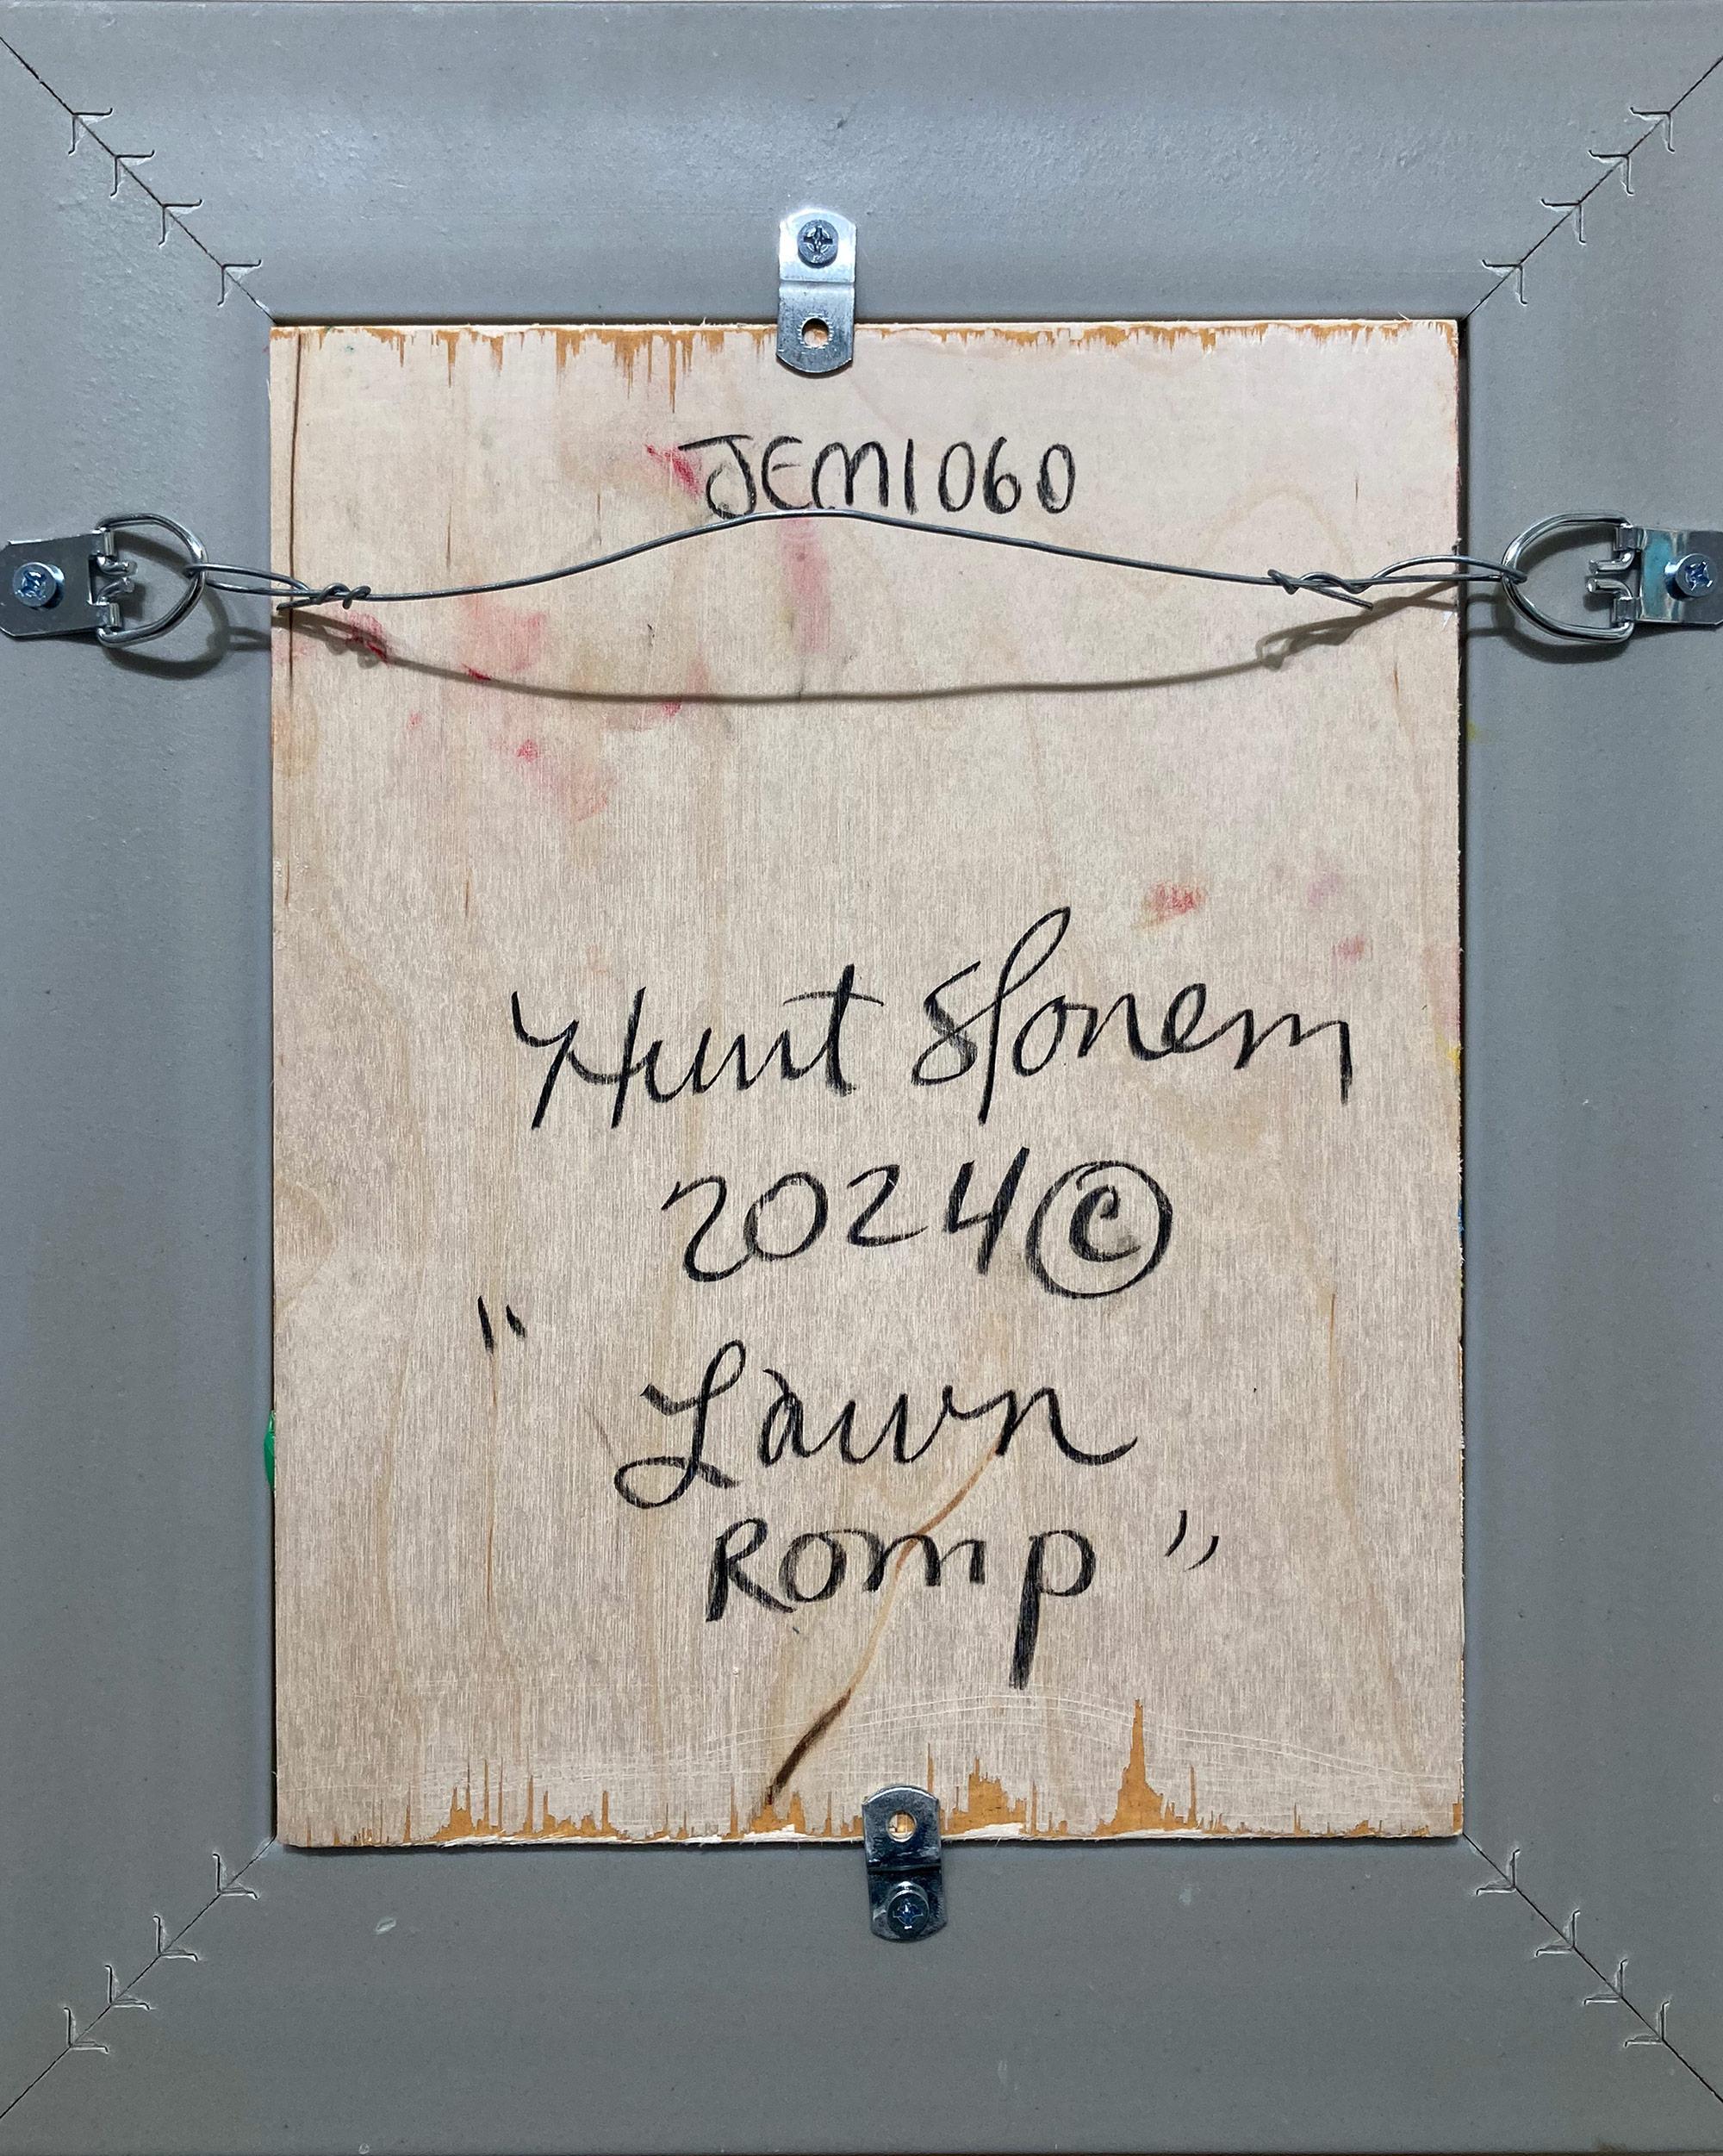 JEM1060
Hunt Slonem
2024©
"Lawn
Romp"